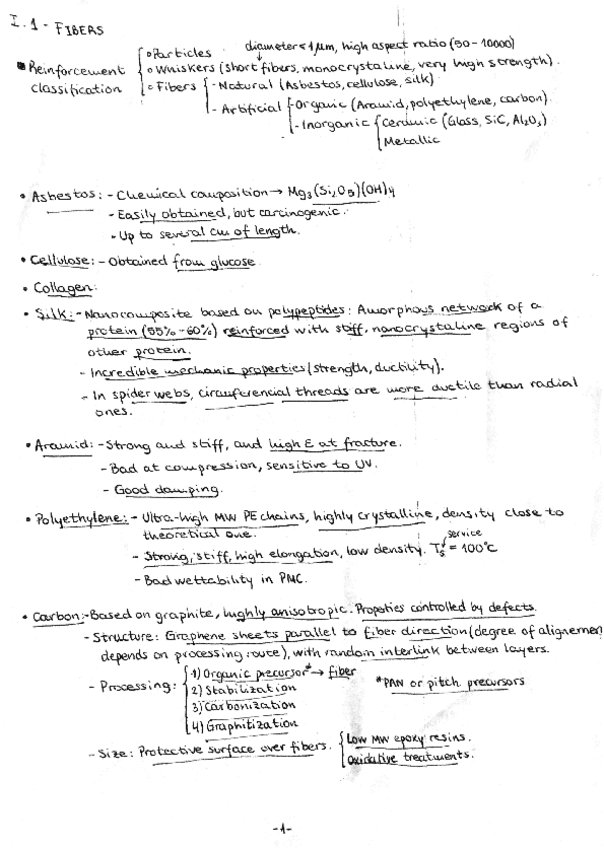 I.1 - FIBERS
diameter < 1μm, high aspect ratio (50 - 10000)
▪ Reinforcement classification { ◦ Particles
◦ Whiskers (short fibers, monocrystaline, very high strength).
◦ Fibers { - Natural (Asbestos, cellulose, silk)
- Artificial { - Organic (Aramid, polyethylene, carbon)
- Inorganic { Ceramic (Glass, SiC, Al2O3)
Metallic
• Asbestos: - Chemical composition → Mg3(Si2O5)(OH)4
- Easily obtained, but carcinogenic.
- Up to several cm of length.
• Cellulose: - Obtained from glucose
• Collagen:
• Silk: - Nanocomposite based on polypeptides: Amorphous network of a
protein (55% - 60%) reinforced with stiff, nanocrystaline regions of
other protein.
- Incredible mechanic properties (strength, ductility).
- In spider webs, circunferencial threads are more ductile than radial
ones.
• Aramid: - Strong and stiff, and high ε at fracture.
- Bad at compression, sensitive to UV.
- Good damping.
• Polyethylene: - Ultra-high MW PE chains, highly crystalline, density close to
theoretical one.
service
- Strong, stiff, high elongation, low density. Ts = 100°C
- Bad wettability in PMC.
• Carbon: - Based on graphite, highly anisotropic. Properties controlled by defects.
- Structure: Graphene sheets parallel to fiber direction (degree of alignemen
depends on processing route), with random interlink between layers.
- Processing: { 1) Organic precursor* → fiber
2) Stabilization
*PAN or pitch precursors
3) Carbonization
4) Graphitization
- Size: Protective surface over fibers. { Low MW epoxy resins.
Oxidative treatments.
-1-